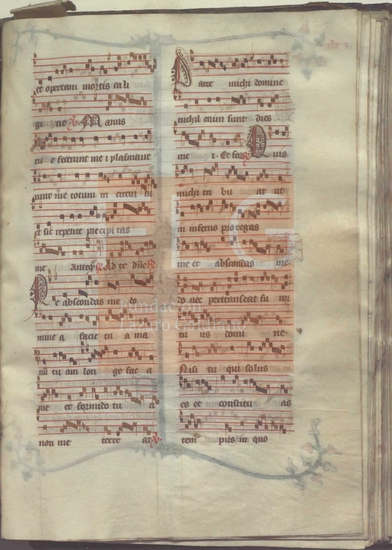 et opertam mortis cali
gine Manus
tue fecerunt me et plasmaue
runt me totum in circuitu
et sic repente precipitas
me Antequam Ad te dne
Ne abscondas me do
mine a facie tua ma
num tuam longe fac a
me et formido tua
non me terreat
Parce michi domine
nichil enim sunt dies
me i Et for Quis
michi tribuat ut
in inferno protegas
me et abscondas me
donec pertranseat fu
tuus domine
Nisi tu qui solus
es et constituas
tempus in quo